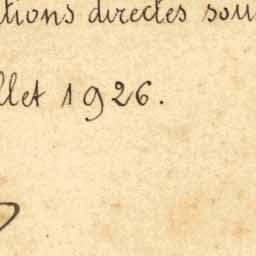 tions directes sou
llet 1926.